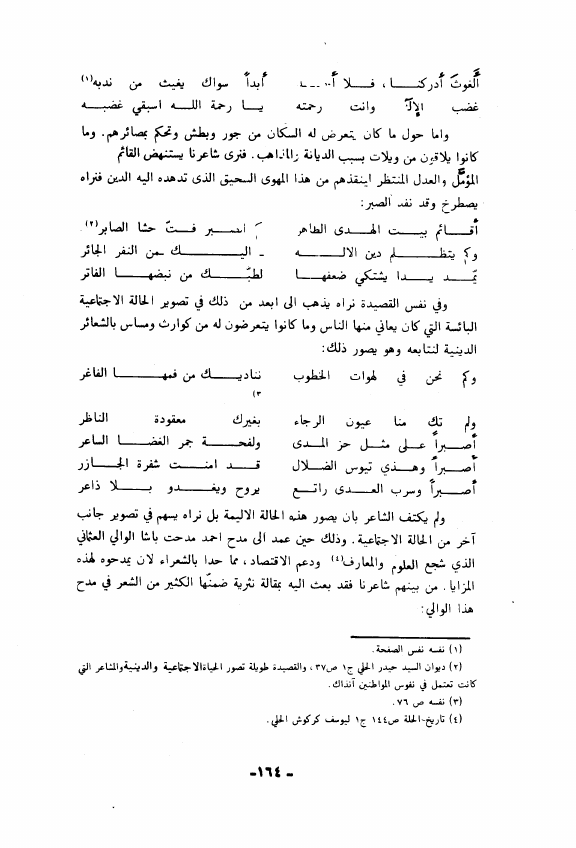 ألغوثَ أدركنا، فلا أ... أبداً سواك يغيث من ندبه(١)
غضب الإلآ وانت رحمته يا رحمة الله اسبقي غضبه
واما حول ما كان يتعرض له السكان من جور وبطش وتحكم بمصائرهم. وما
كانوا يلاقون من ويلات بسبب الديانة والمذاهب. فنرى شاعرنا يستنهض القائم
المؤمَّل والعدل المنتظر لينقذهم من هذا المهوى السحيق الذى تدهده اليه الدين فنراه
يصطرخ وقد نفد الصبر:
أقائم بيت الهدى الطاهر كم الصبر فتّ حشا الصابر(٢).
وكم يتظلم دين الاله اليك من النفر الجائر
تمد يدا يشتكي ضعفها لطبّك من نبضها الفاتر
وفي نفس القصيدة نراه يذهب الى ابعد من ذلك في تصوير الحالة الاجتماعية
البائسة التي كان يعاني منها الناس وما كانوا يتعرضون له من كوارث ومساس بالشعائر
الدينية لنتابعه وهو يصور ذلك:
وكم نحن في لهوات الخطوب نناديك من فمها الفاغر
٣)
ولم تك منا عيون الرجاء بغيرك معقودة الناظر
أصبراً على مثل حز المدى ولفحة جمر الغضا الساعر
أصبراً وهذي تيوس الضلال قد امنت شفرة الجازر
أصبراً وسرب العدى راتع يروح ويغدو بلا ذاعر
ولم يكتف الشاعر بان يصور هذه الحالة الاليمة بل نراه يسهم في تصوير جانب
آخر من الحالة الاجتماعية. وذلك حين عمد الى مدح احمد مدحت باشا الوالي العثماني
الذي شجع العلوم والمعارف(٤) ودعم الاقتصاد، مما حدا بالشعراء لان يمدحوه لهذه
المزايا. من بينهم شاعرنا فقد بعث اليه بمقالة نثرية ضمنّها الكثير من الشعر في مدح
هذا الوالي:
(١) نفسه نفس الصفحة.
(٢) ديوان السيد حيدر الحلي ج١ ص٣٧، والقصيدة طويلة تصور الحياة الاجتماعية والدينية والمشاعر التي
كانت تعتمل في نفوس المواطنين آنذاك.
(٣) نفسه ص ٧٦.
(٤) تاريخ الحلة ص١٤٤ ج١ ليوسف كركوش الحلي.
-١٦٤-